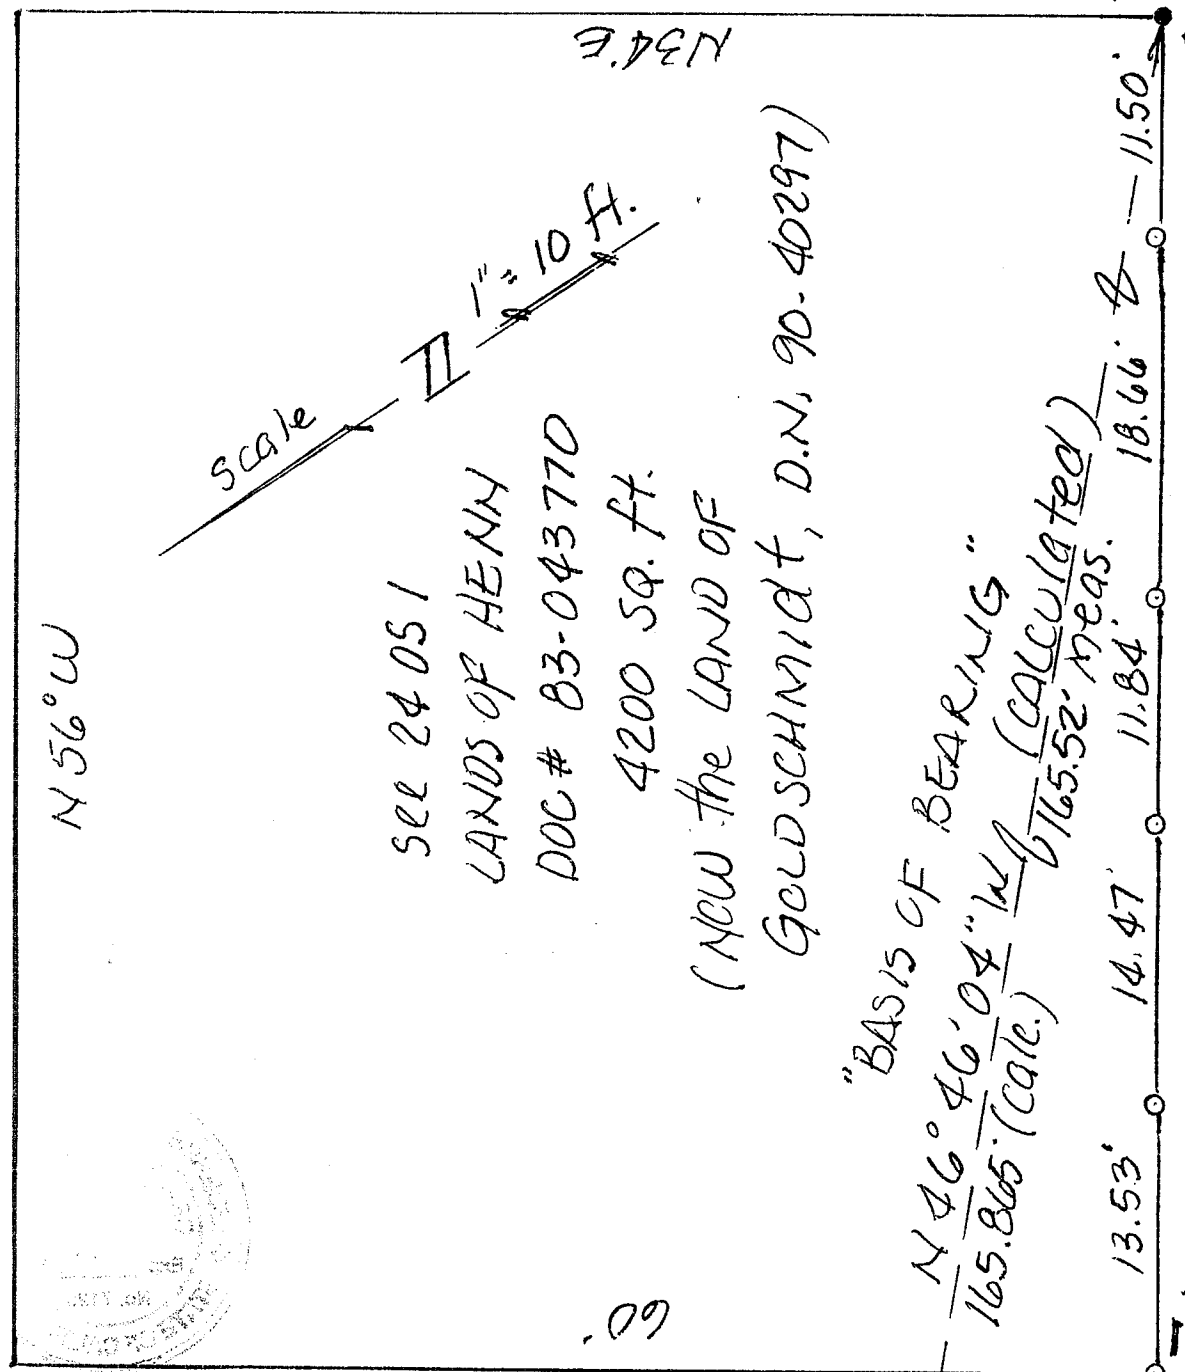 N34°E
N 56° W
Scale
1" = 10 ft.
See 24 OS 1
LANDS OF HENN
DOC # 83-043770
4200 SQ. ft.
(NOW the LAND OF
GOLDSCHMIDT, D.N. 90-40297)
"BASIS OF BEARING"
N 46° 46' 04" W (CALCULATED)
165.865' (calc.) 165.52' meas.
13.53' 14.47' 11.84' 18.66' & 11.50'
60'